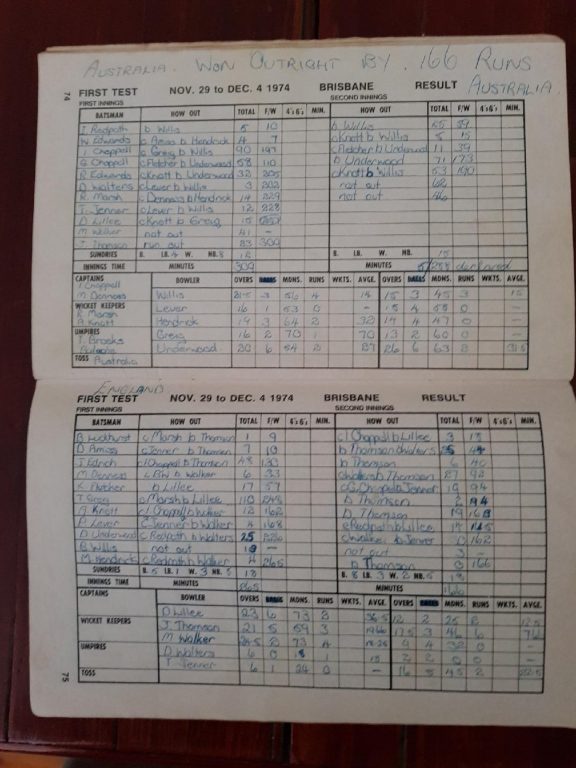 AUSTRALIA. WON OUTRIGHT BY. 166 RUNS
74 FIRST TEST NOV. 29 to DEC. 4 1974 BRISBANE RESULT AUSTRALIA
FIRST INNINGS SECOND INNINGS
BATSMAN HOW OUT TOTAL F/W 4's 6's MIN. HOW OUT TOTAL F/W 4's 6's MIN.
I Redpath b Willis 5 10 b Willis 25 59
W Edwards c Amiss b Hendrick 4 7 c Knott b Willis 5 15
I Chappell c Greig b Willis 90 197 c Fletcher b Underwood 11 39
G Chappell c Fletcher b Underwood 58 110 b Underwood 71 173
R Edwards c Knott b Underwood 32 205 c Knott b Willis 53 190
D Walters c Lever b Willis 3 202 not out 62
R. Marsh c Denness b Hendrick 14 229 not out 46
T. Jenner c Lever b Willis 12 228
D Lillee c Knott b Greig 15
M Walker not out 41 –
J. Thomson run out 23 309
SUNDRIES B. LB. 4 W. NB. 8 12 B. LB. W. NB. 15
INNINGS TIME MINUTES 309 MINUTES 5/288 declared
CAPTAINS BOWLER OVERS BALLS MDNS. RUNS WKTS. AVGE. OVERS BALLS MDNS. RUNS WKTS. AVGE.
I Chappell
M Denness Willis 21·5 3 56 4 14 15 3 45 3 15
WICKET KEEPERS Lever 16 1 53 0 – 18 4 58 0 –
R Marsh
A Knott Hendrick 19 3 64 2 32 13 2 47 0 –
UMPIRES Greig 16 2 70 1 70 13 2 60 0 –
T. Brooks
Underwood 20 6 54 2 27 26 6 63 2 31·5
TOSS Australia
ENGLAND
FIRST TEST NOV. 29 to DEC. 4 1974 BRISBANE RESULT
FIRST INNINGS SECOND INNINGS
BATSMAN HOW OUT TOTAL F/W 4's 6's MIN. HOW OUT TOTAL F/W 4's 6's MIN.
B Luckhurst c Marsh b Thomson 1 9 c I Chappell b Lillee 3 18
D Amiss c Jenner b Thomson 7 10 b Thomson c Walters 25 44
J Edrich c I Chappell b Thomson 48 133 b Thomson 6 40
M Denness LBW b Walker 6 33 c Walters b Thomson 27 92
K Fletcher b Lillee 17 57 c G. Chappell b Jenner 19 94
T Greig c Marsh b Lillee 110 b Thomson 2 94
A Knott c I Chappell b Walker 12 162 b Thomson 19
P Lever c I Jenner b Walker 4 168 c Redpath b Lillee 14
D Underwood c Redpath b Walters 25 c Walker b Jenner 30 162
B. Willis not out not out 3 –
M. Hendrick c Redpath b Walker 4 265 b Thomson 0 166
SUNDRIES B. 5 LB. 2 W. 3 NB. 8 18 B. 8 LB. 3 W. 2 NB. 5 18
INNINGS TIME MINUTES 265 MINUTES 166
CAPTAINS BOWLER OVERS BALLS MDNS. RUNS WKTS. AVGE. OVERS BALLS MDNS. RUNS WKTS. AVGE.
D Lillee 23 6 73 2 36·5 12 2 25 2 12·5
WICKET KEEPERS J. Thomson 21 5 59 3 19·66 17·5 3 46 6
M Walker 24·5 2 73 4 18·25 9 4 32 0 –
UMPIRES D Walters 6 0 18 1 18 2 2 0 0 –
T Jenner 6 1 24 0 – 16 5 45 2 22·5
75 TOSS